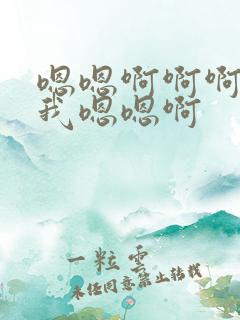 嗯嗯啊啊啊
我嗯嗯啊
一粒云
未经同意禁止转载